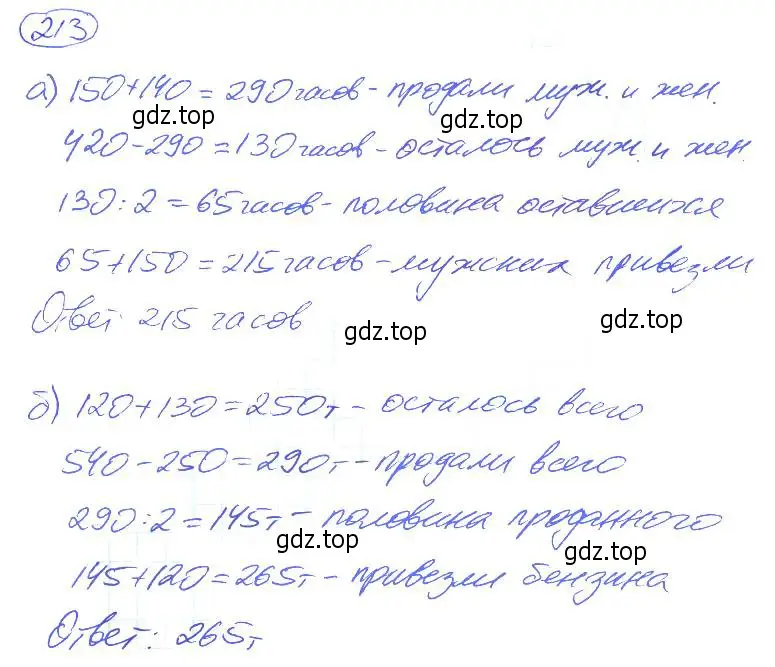 213
а) 150+140=290 часов - продали муж. и жен.
gdz.top gdz.top
420-290=130 часов - осталось муж. и жен.
130:2=65 часов - половина оставшихся
65+150=215 часов - мужских привезли
Ответ: 215 часов
gdz.top gdz.top
б) 120+130=250т - осталось всего
540-250=290т - продали всего
290:2=145т - половина проданного
gdz.top gdz.top
145+120=265т - привезли бензина
Ответ: 265т